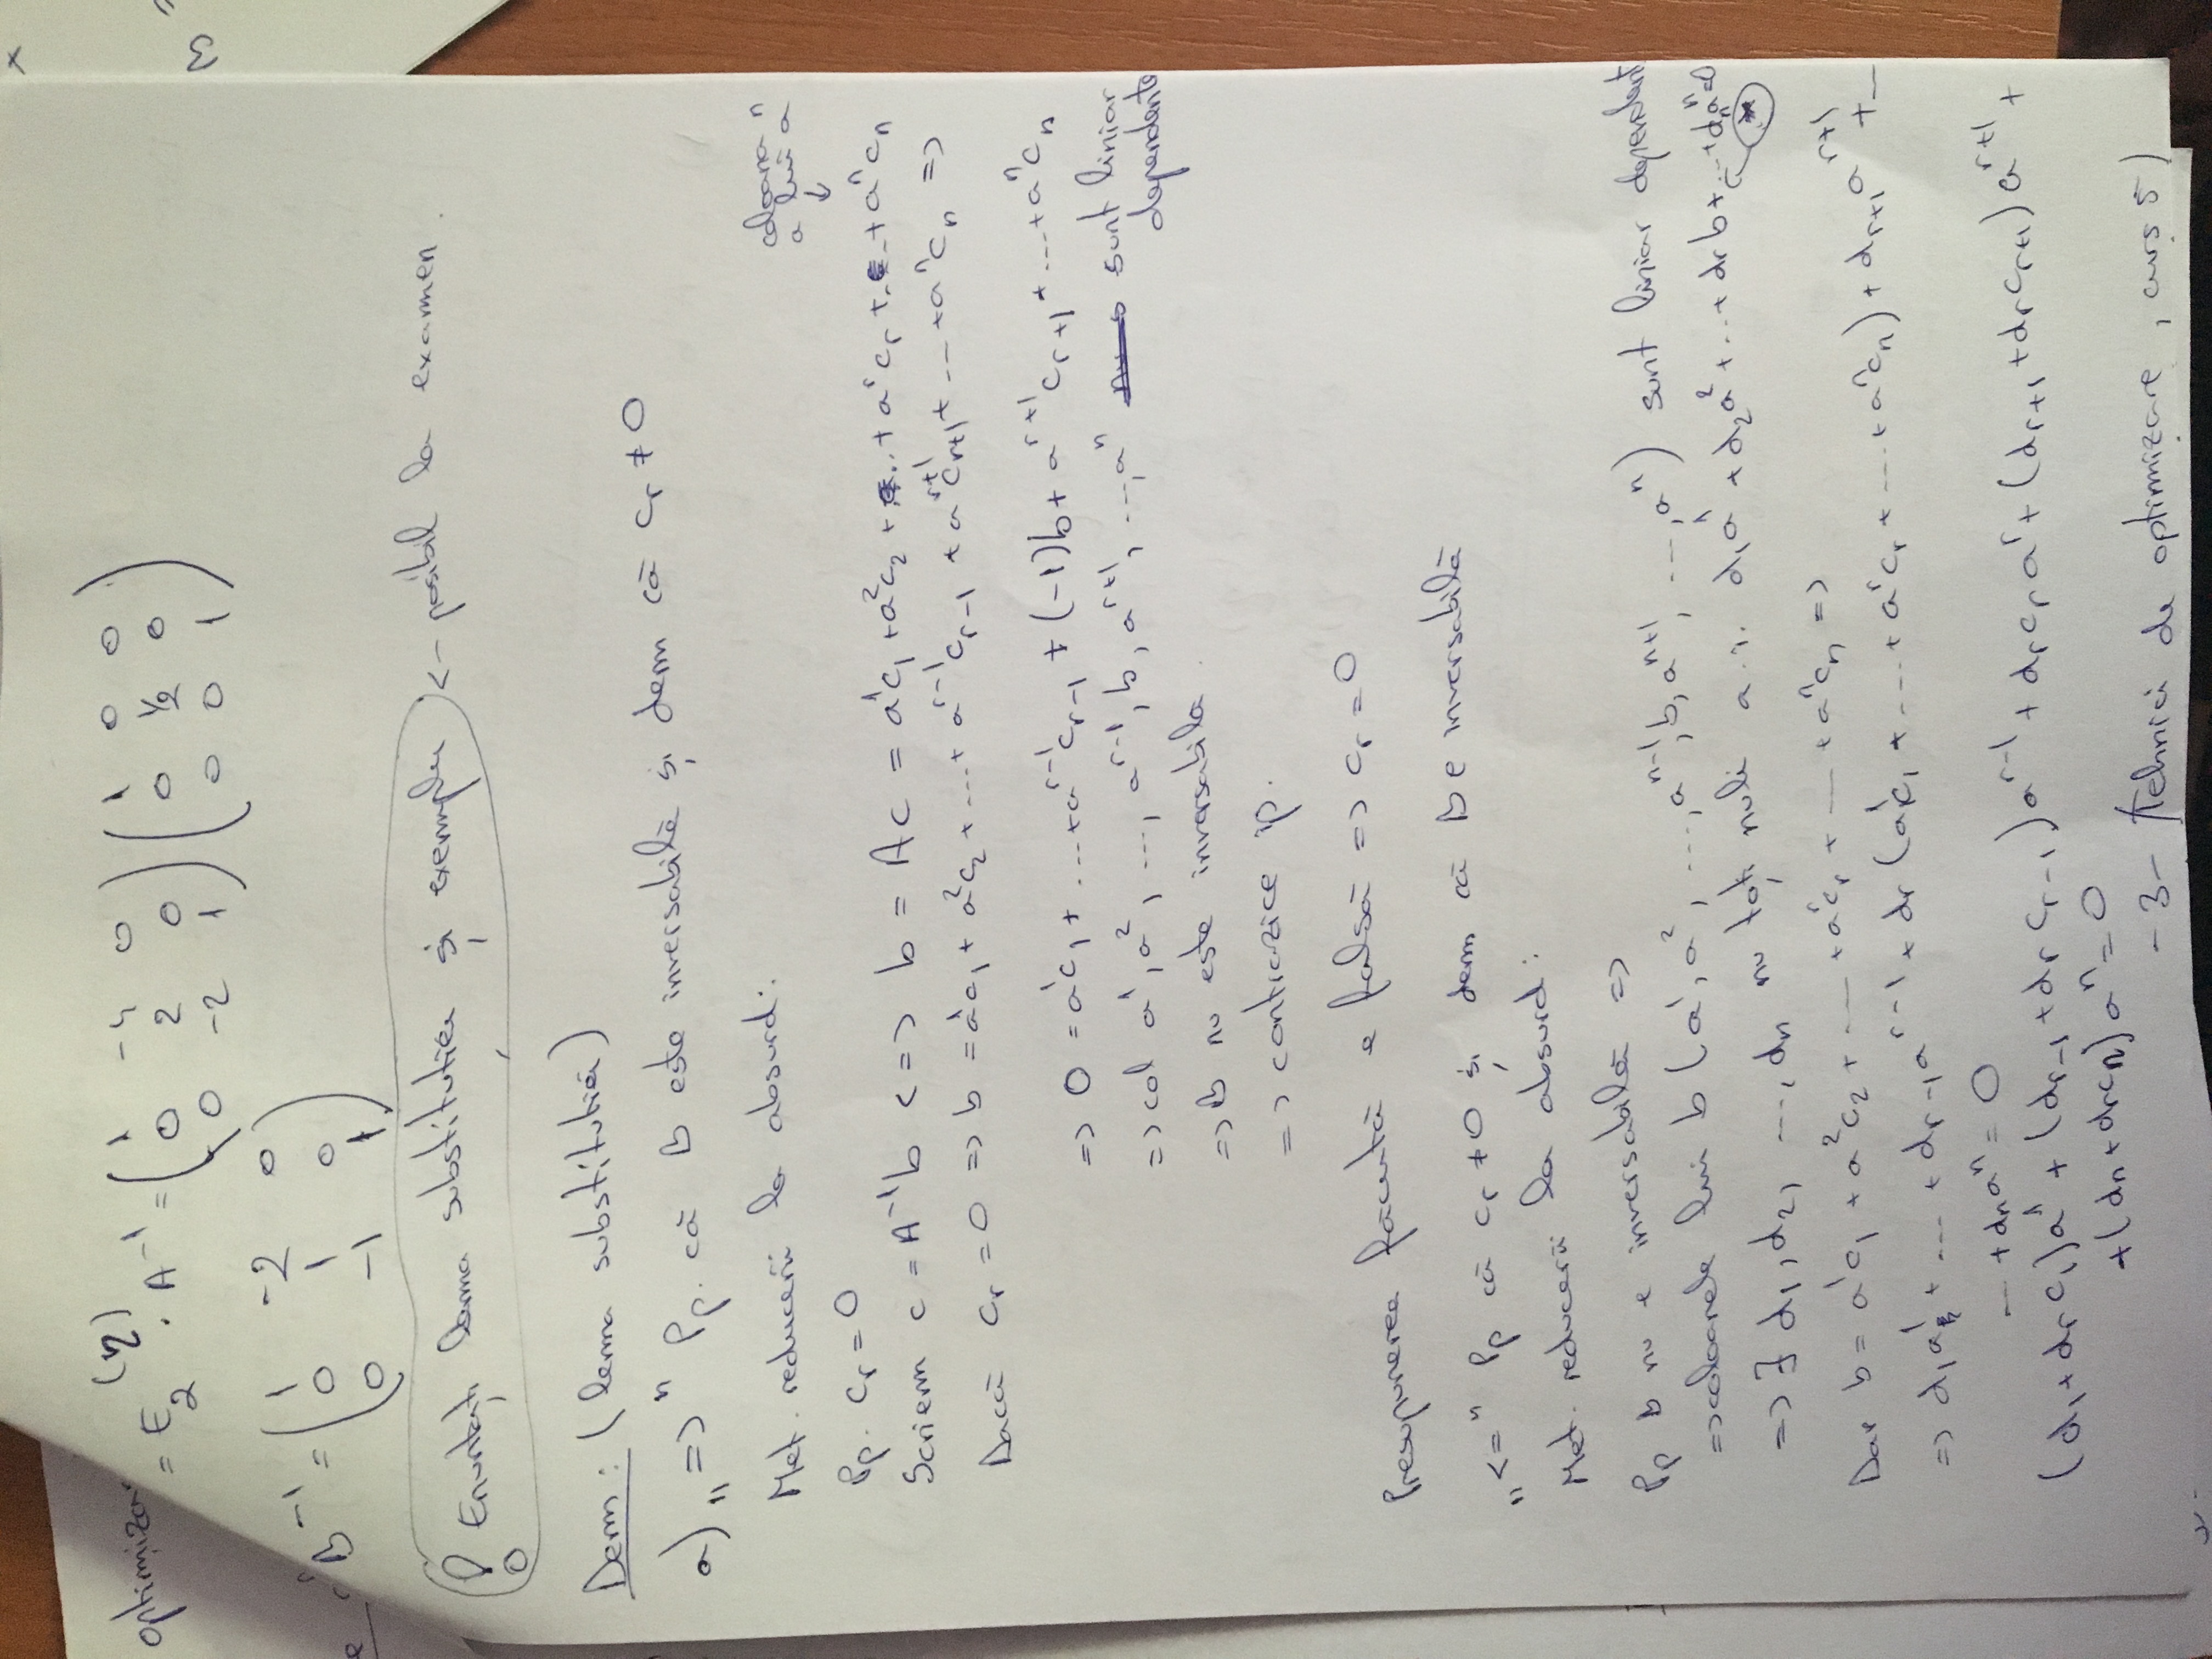 optimizar
= E₂(η) · A⁻¹ = ( 1 -4 0 ) ( 1 0 0 )
( 0 2 0 ) ( 0 1/2 0 )
( 0 -2 1 ) ( 0 0 1 )
B⁻¹ = ( 1 -2 0 )
( 0 1 0 )
( 0 -1 1 )
Enuntați lema substituției și exemplu <- posibil la examen.
Dem: (lema substituției)
a) "=>" Pp. că B este inversabilă și dem că cr ≠ 0
Met. reducerii la absurd:
coloana n
a lui a
↓
Pp. cr = 0
Scriem c = A⁻¹b <=> b = Ac = a¹c₁ + a²c₂ + ... + aʳcr + ... + aⁿcn
Dacă cr = 0 => b = a¹c₁ + a²c₂ + ... + aʳ⁻¹cr-1 + aʳ⁺¹cr+1 + ... + aⁿcn =>
=> 0 = a¹c₁ + ... + aʳ⁻¹cr-1 + (-1)b + aʳ⁺¹cr+1 + ... + aⁿcn
=> col a¹, a², ..., aʳ⁻¹, b, aʳ⁺¹, ..., aⁿ sunt liniar
dependente
=> B nu este inversabila.
=> contrazice ip.
Presupunerea făcută e falsă => cr = 0
"<=" Pp că cr ≠ 0 și dem că B e inversabilă
Met. reducerii la absurd:
Pp B nu e inversabilă =>
=> coloanele lui B (a¹, a², ..., aⁿ⁻¹, b, aⁿ⁺¹, ..., aⁿ) sunt liniar dependente
=> ∃ d₁, d₂, ..., dn nu toți nuli a.î. d₁a¹ + d₂a² + ... + drb + ... + dnaⁿ = 0
*
Dar b = a¹c₁ + a²c₂ + ... + aʳcr + ... + aⁿcn =>
=> d₁a¹ + ... + dr-1aʳ⁻¹ + dr(a¹c₁ + ... + aʳcr + ... + aⁿcn) + dr+1aʳ⁺¹ + ...
... + dnaⁿ = 0
(d₁ + drc₁)a¹ + (dr-1 + drcr-1)aʳ⁻¹ + drcraʳ + (dr+1 + drcr+1)aʳ⁺¹ +
+ (dn + drcn)aⁿ = 0
- 3 - (Tehnici de optimizare, curs 5)